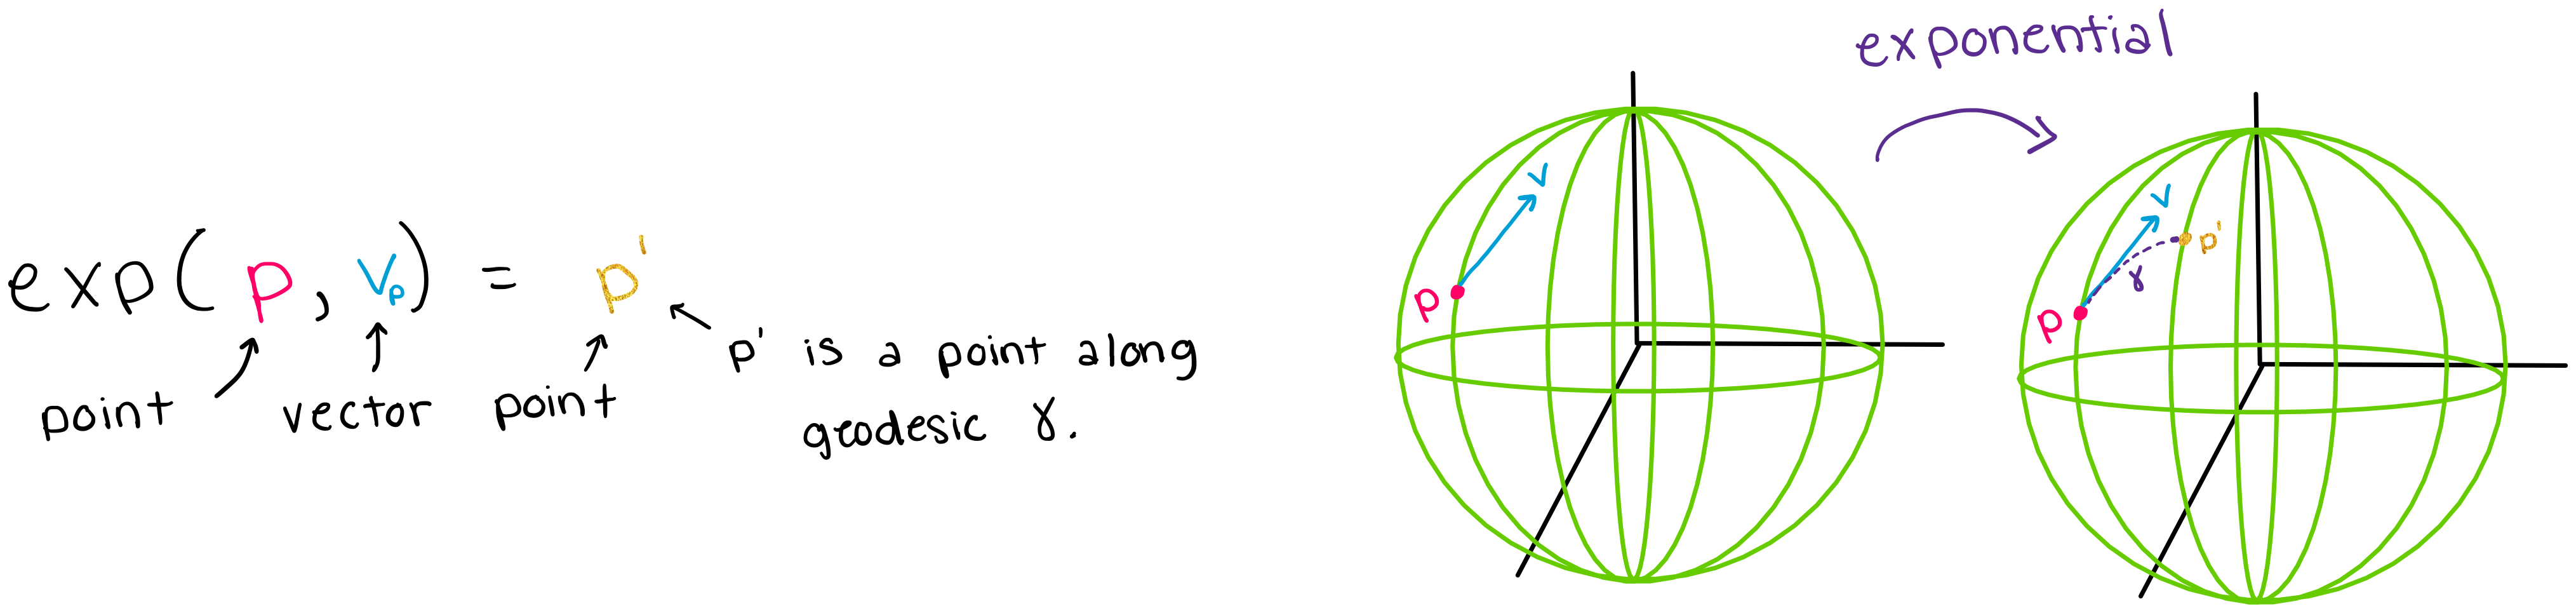 exp(p, vₚ) = p'
point
vector
point
p' is a point along
geodesic γ.
exponential
v
p
v
p'
γ
p